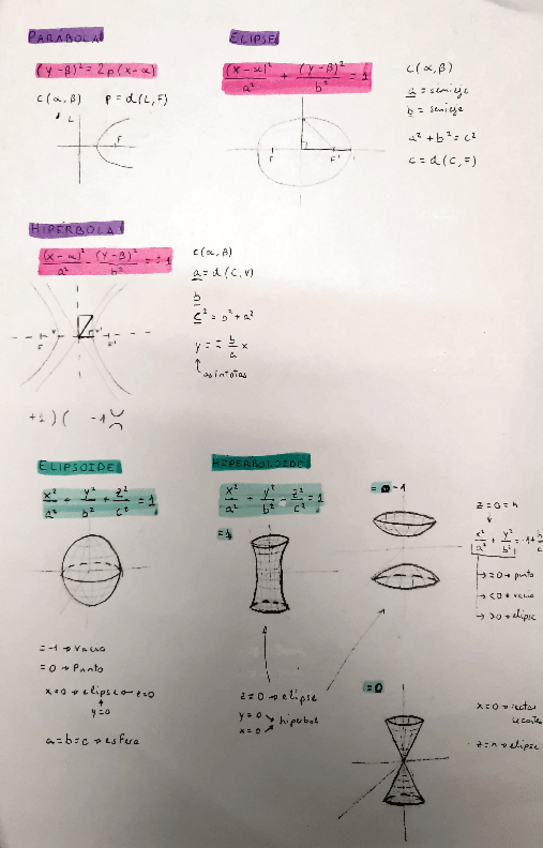 PARÁBOLA
(y-β)² = 2p(x-α)
C(α,β) P = d(L,F)
L
F
ELIPSE
(x-α)²/a² + (y-β)²/b² = 1
F F'
C(α,β)
a = semieje
b = semieje
a² + b² = c²
c = d(C,F)
HIPÉRBOLA
(x-α)²/a² - (y-β)²/b² = ±1
F F'
C(α,β)
a = d(C,V)
b
c² = b² + a²
y = ± b/a x
asíntotas
+1 )( -1
ELIPSOIDE
x²/a² + y²/b² + z²/c² = 1
= -1 → vacío
= 0 → Punto
x=0 → elipse ← z=0
y=0
a=b=c → esfera
HIPERBOLOIDE
x²/a² + y²/b² - z²/c² = 1
= 1
= -1
z=0 → elipse
y=0
x=0
hiperbol
x²/a² + y²/b² = -1 +
→ =0 → punto
→ <0 → vacío
→ >0 → elipse
= 0
x=0 → rectas
z=n → elipse